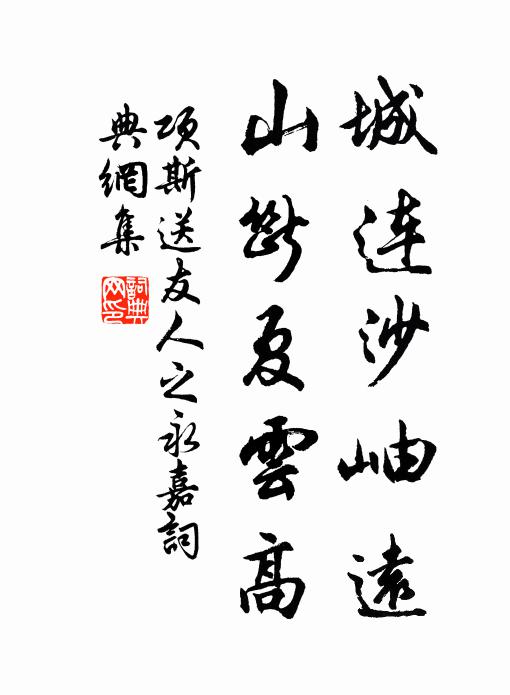 城連沙岫遠
山斷夏雲高
項斯送友人之永嘉詞
典網集
詞典
网印